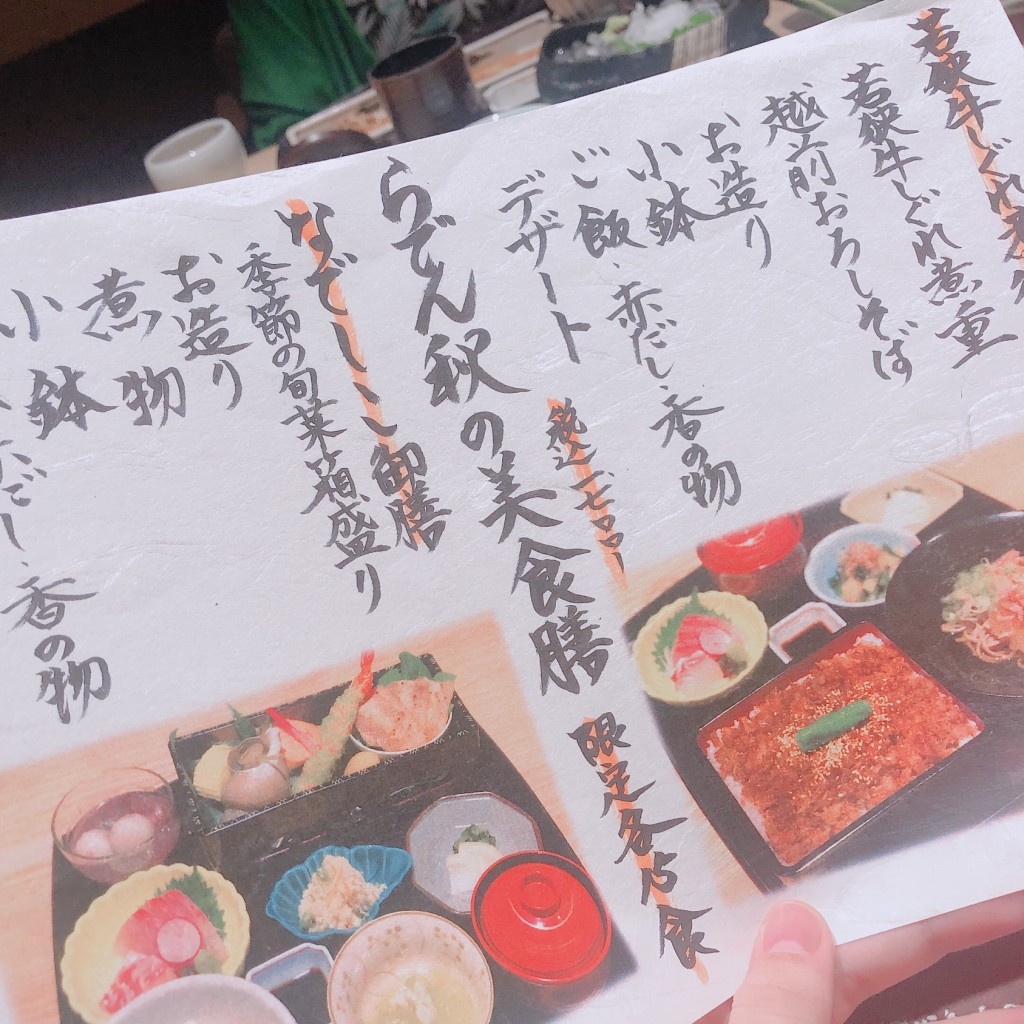 若狭牛しぐれ煮
若狭牛しぐれ煮重
越前おろしそば
お造り
小鉢
ご飯、赤だし、香の物
デザート
税込一七〇〇
限定各15食
らでん秋の美食膳
なでしこ御膳
季節の旬菜箱盛り
お造り
煮物
小鉢
だし、香の物